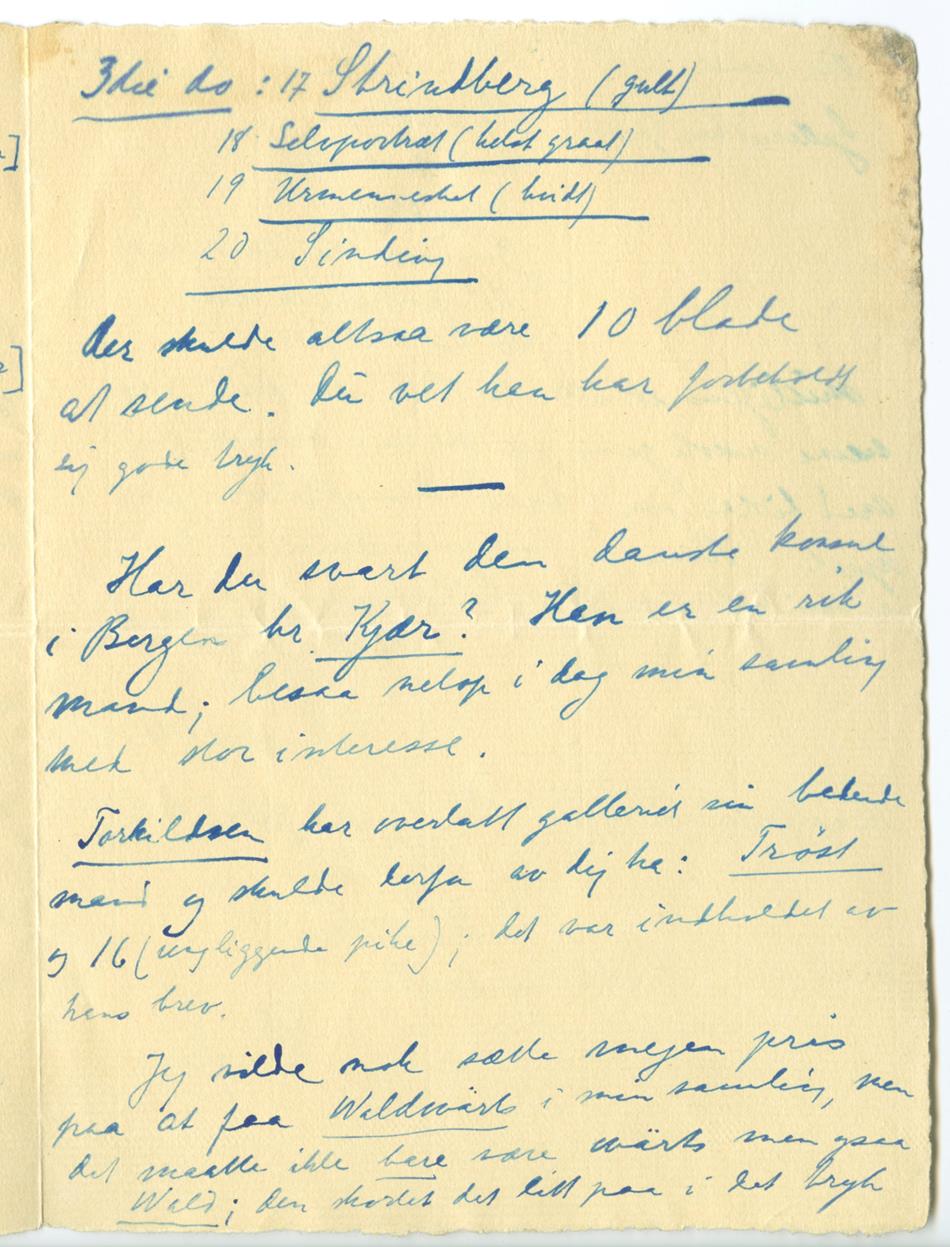 3die do : 17 Strindberg (gult)
18 Selvportræt (helst graat)
19 Urmennesket (hvidt)
20 Sinding
Der skulde altsaa være 10 blade
at sende. Du vet han har forbeholdt
sig gode tryk.
Har du svart den danske konsul
i Bergen hr. Kjær? Han er en rik
mand; besaa netop i dag min samling
med stor interesse.
Torkildsen har overlatt galleriet sin bedende
mand og skulde derfor av dig ha: Tröst
og 16 (ungliggende pike); det var indholdet av
hans brev.
Jeg vilde nok sætte megen pris
paa at faa Waldwärts i min samling, men
det maatte ikke bare være wärts men ogsaa
Wald; den skortet det litt paa i det tryk